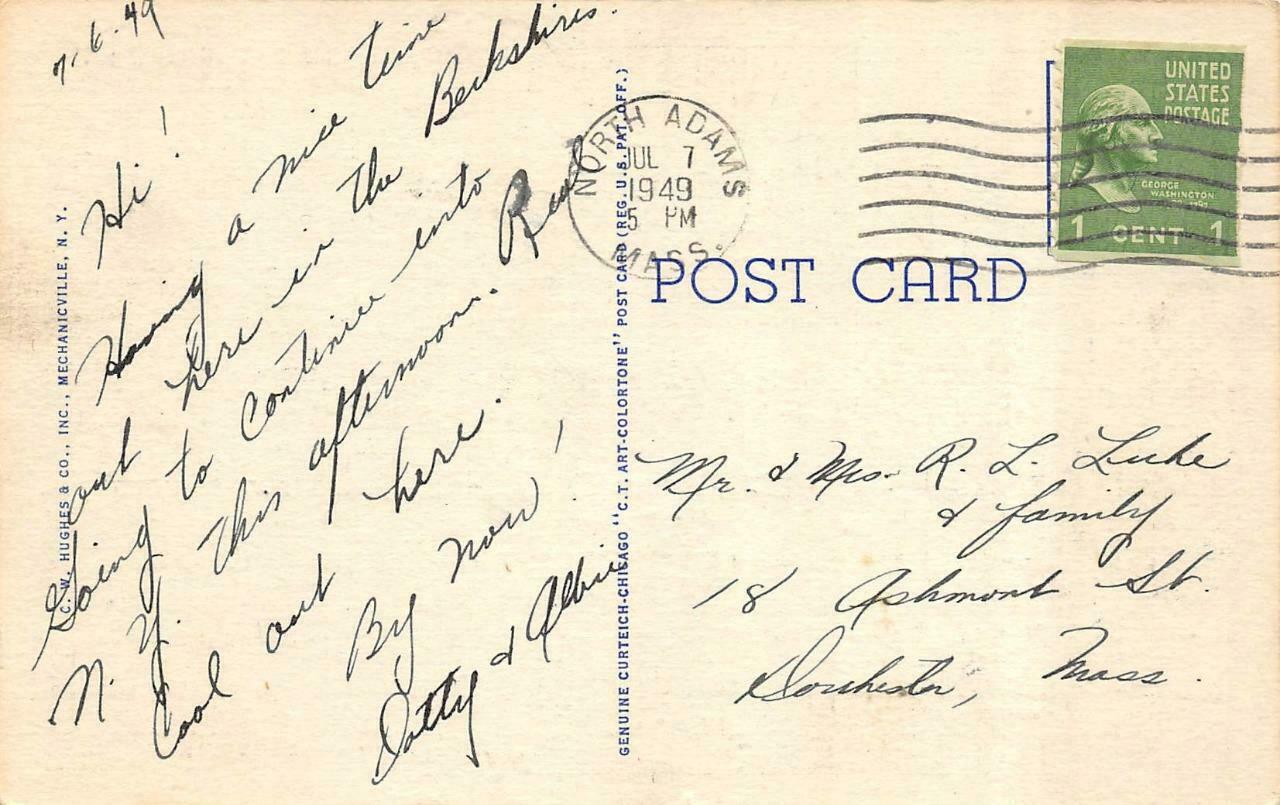 7-6-49
Hi!
Having a nice time
out here in the Berkshires.
Going to continue into
N. Y. this afternoon. Real
Cool out here.
By now!
Patty & Albie
C. W. HUGHES & CO., INC., MECHANICVILLE, N. Y.
GENUINE CURTEICH-CHICAGO "C.T. ART-COLORTONE" POST CARD (REG. U.S. PAT. OFF.)
NORTH ADAMS
JUL 7
1949
5 PM
MASS.
UNITED
STATES
POSTAGE
GEORGE
WASHINGTON
1 CENT 1
POST CARD
Mr. & Mrs. R. L. Luke
& family
18 Ashmont St.
Dorchester, Mass.